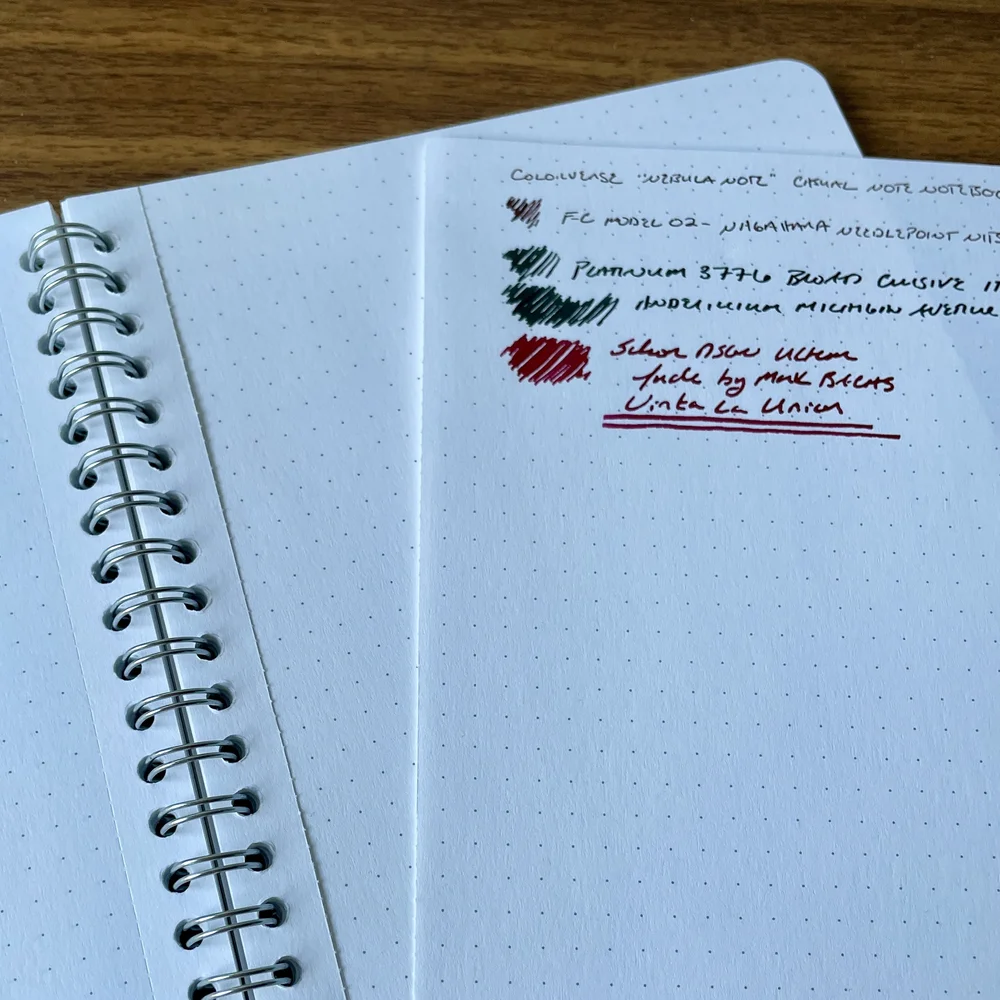 COLORVERSE "NEBULA NOTE" CASUAL NOTE NOTEBOO
FC MODEL 02 - NAGAHARA NEEDLEPOINT
PLATINUM 3776 BROAD CURSIVE IT
ANDERILLIUM MICHIGAN AVENUE
by MARK BACAS
Vinta La Union